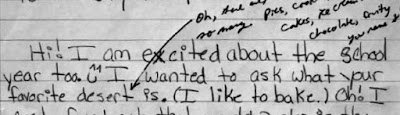 Oh, there are
so many. Pies, cookies,
cakes, ice cream
chocolate, fruity
you name it
Hi! I am excited about the school
year too. I wanted to ask what your
favorite desert is. (I like to bake.) Oh! I